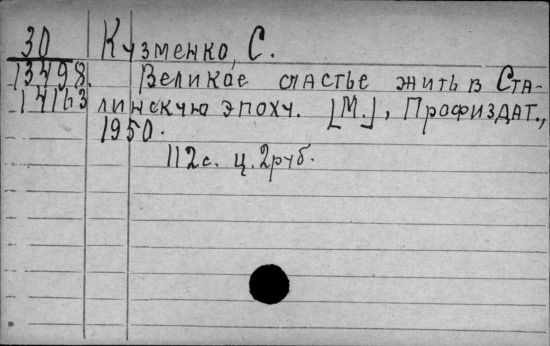 30 Кузменко, С.
13498. Великое счастье жить в Ста-
14163 линскую эпоху. [М.], Профиздат.,
1950.
112с. ц. 2руб.